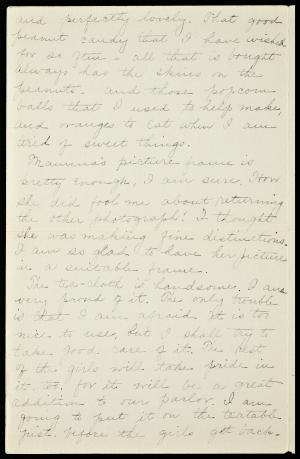 and perfectly lovely. That good
peanut candy that I have wished
for so often - all that is bought
always has the skins on the
peanuts - and those popcorn
balls that I used to help make,
and oranges to eat when I am
tired of sweet things.
Mamma's picture frame is
pretty enough, I am sure. How
she did fool me about returning
the other photograph! I thought
she was making fine distinctions.
I am so glad to have her picture
in a suitable frame.
The tea-cloth is handsome. I am
very proud of it. The only trouble
is that I am afraid it is too
nice to use, but I shall try to
take good care of it. The rest
of the girls will take pride in
it, too, for it will be a great
addition to our parlor. I am
going to put it on the teatable
just before the girls get back.